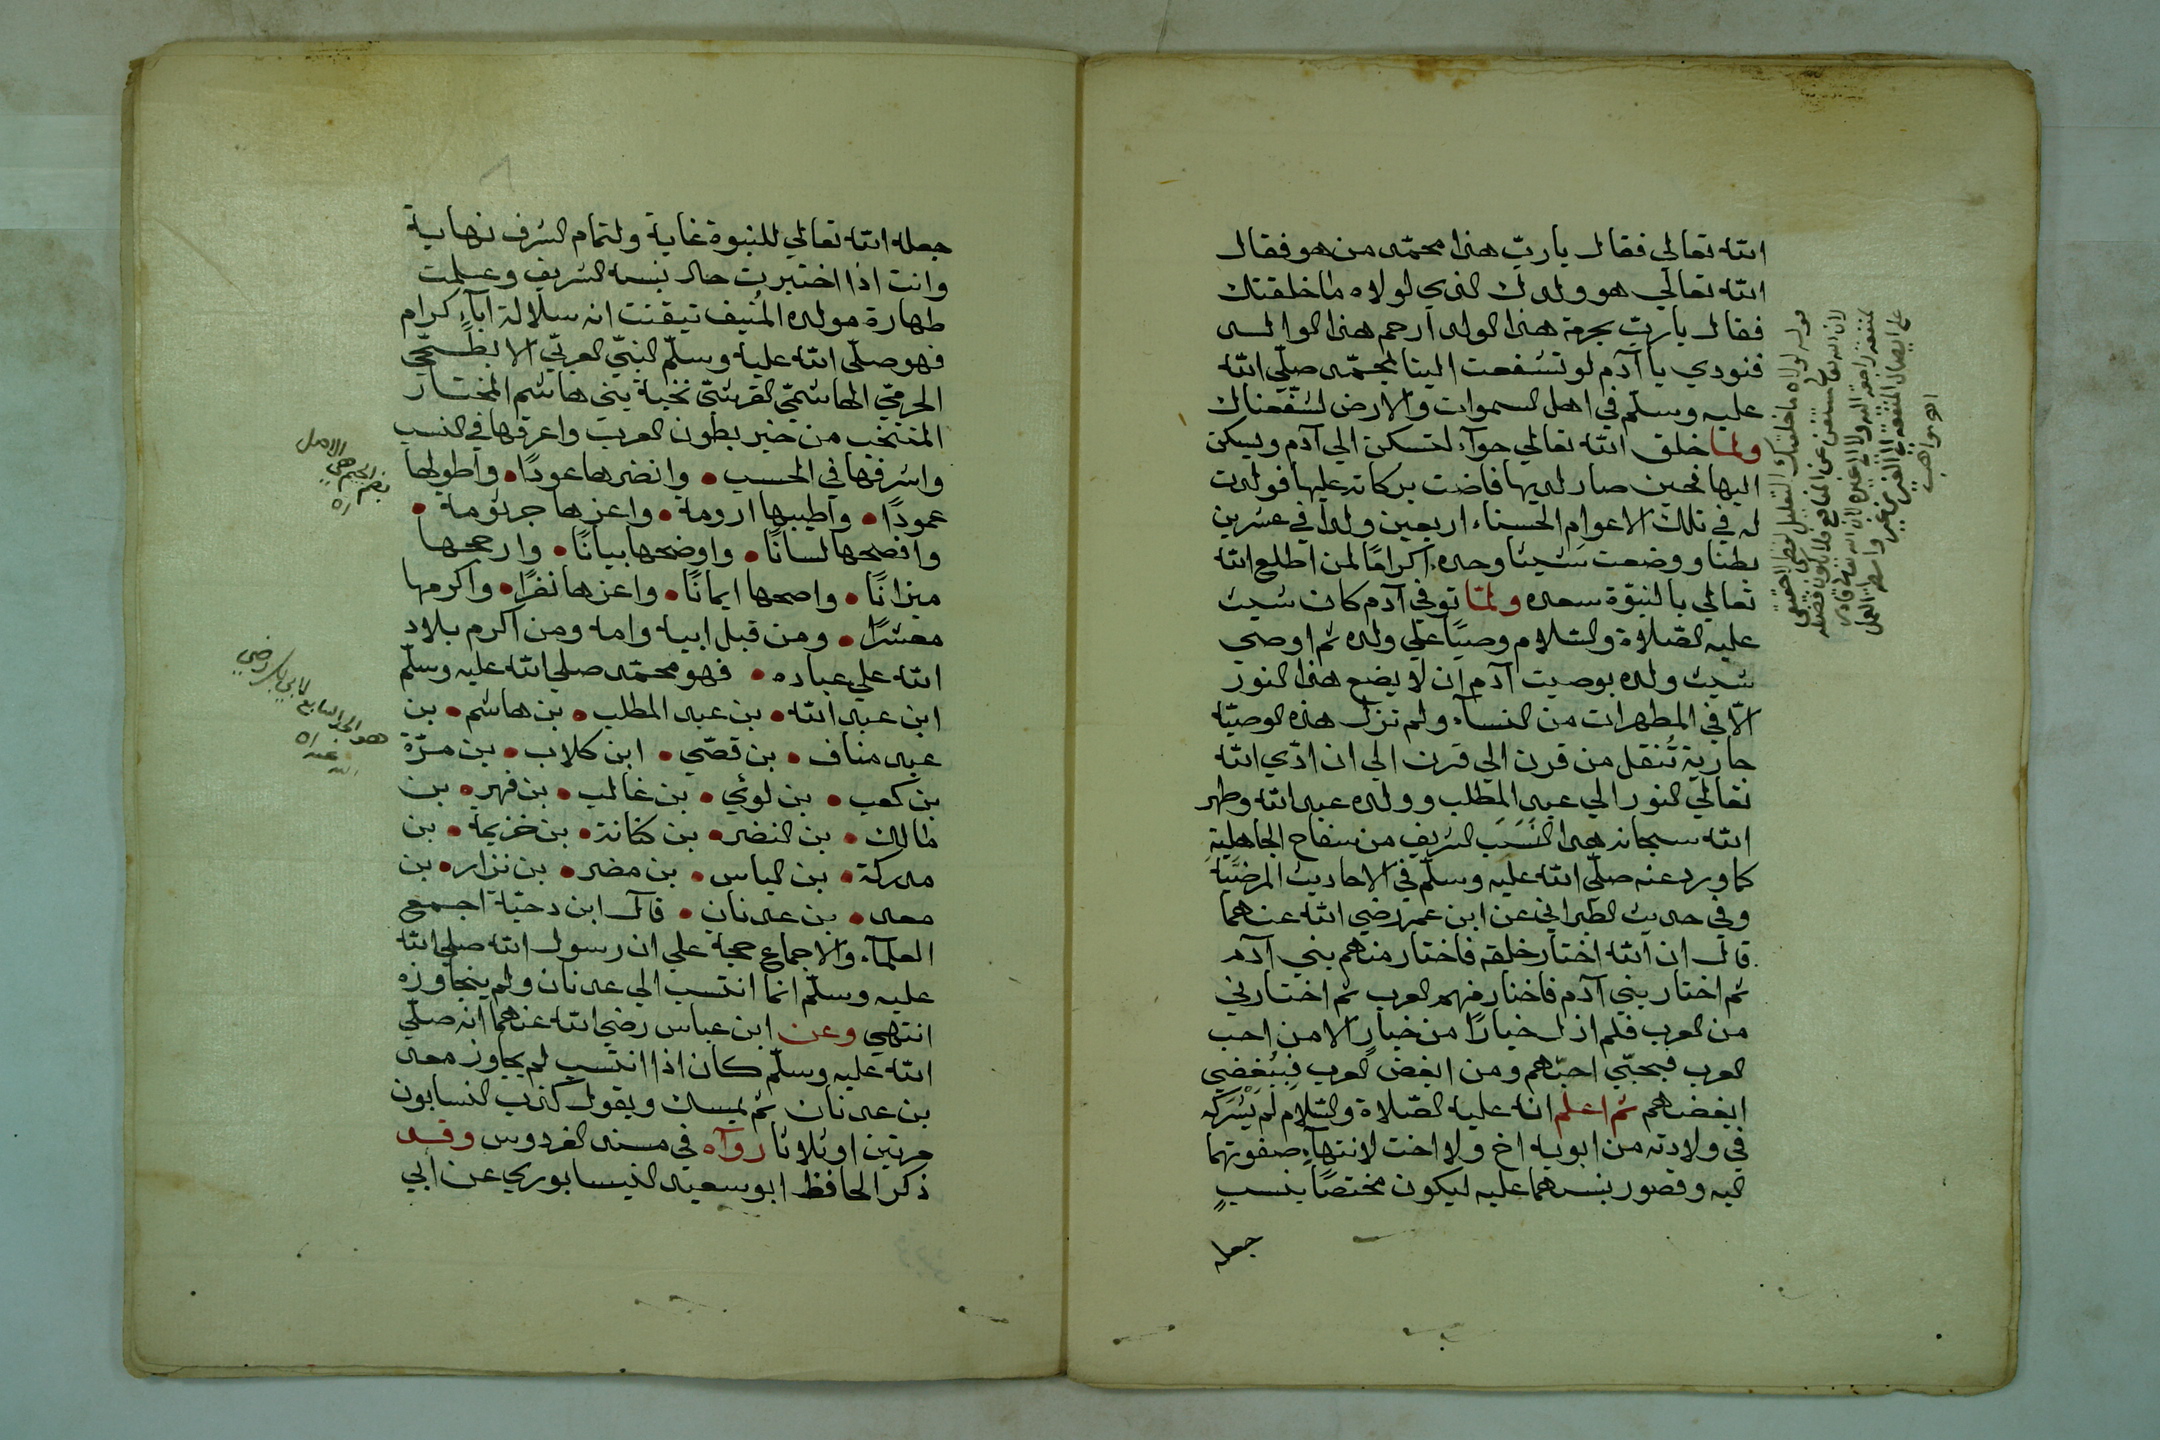 الله تعالي فقال يا ربّ هذا محمّد من هو فقال
الله تعالي هو ولدك الذي لولاه ما خلقتك
فقال يا ربّ بحرمة هذا الولد ارحم هذا الوالد
فنودي يا آدم لو تشفعت الينا بمحمّد صلّي الله
عليه وسلّم في اهل السموات والارض لشفّعناك
ولما خلق الله تعالي حوآء لتسكن الي آدم ويسكن
اليها فحين صار لديها فاضت بركاته عليها فولدت
له في تلك الاعوام الحسناء اربعين ولدا في عشرين
بطنا ووضعت شيثا وحده اكرامًا لمن اطلع الله
تعالي بالنبوّة سعده ولمّا توفي آدم كان شيث
عليه الصّلاة والسّلام وصيًا علي ولده ثم اوصي
شيث ولده بوصيت آدم ان لا يضع هذا النور
الّا في المطهرات من النسآء ولم تزل هذه الوصيّة
جارية تُنقل من قرن الي قرن الي ان ادّي الله
تعالي النور الي عبد المطلب وولده عبد الله وطهر
الله سبحانه هذا النَسَب الشريف من سفاح الجاهلية
كما ورد عنه صلّي الله عليه وسلّم في الاحاديث المرضيّة
وفي حديث الطبراني عن ابن عمر رضي الله عنهما
قال ان الله اختار خلقه فاختار منهم بني آدم
ثم اختار بني آدم فاختار منهم العرب ثم اختارني
من العرب فلم ازل خيارًا من خيارٍ الا من احب
العرب فبحبّي احبّهم ومن ابغض العرب فببُغضي
ابغضهم ثم اعلم انه عليه الصّلاة والسّلام لم يَشْرَكه
في ولادته من ابويه اخ ولا اخت لانتهآءِ صفوتهما
اليه وقصور نسبهما عليه ليكون مختصًا بنسبٍ
جعله
قوله لولاه ما خلقتك
جعله الله تعالي للنبوة غاية ولتمام الشرف نهاية
وانت اذا اختبرت حال نسبه الشريف وعلمت
طهارة مولده المُنيف تيقنت انه سلالة آباءٍ كرام
فهو صلّي الله عليه وسلّم النبيّ العربيّ الابطَحيّ
الحرميّ الهاشميّ القرشيّ نخبة بني هاشم المختار
المنتخب من خير بطون العرب واعرقها في النسب
واشرفها في الحسب • وانضرها عودًا • واطولها
عمودًا • واطيبها ارومة • واعزها جرثومة •
وافصحها لسانًا • واوضحها بيانًا • وارجحها
ميزانًا • واصحها ايمانًا • واعزها نفرًا • واكرمها
معشرًا • ومن قبل ابيه وامه ومن اكرم بلاد
الله علي عباده • فهو محمّد صلي الله عليه وسلّم
ابن عبد الله • بن عبد المطلب • بن هاشم • بن
عبد مناف • بن قصّي • ابن كلاب • بن مرّة
بن كعب • بن لوئي • بن غالب • بن فهر • بن
مالك • بن النضر • بن كنانة • بن خزيمة • بن
مدركة • بن الياس • بن مضر • بن نزار • بن
معد • بن عدنان • قال ابن دحيّة اجمع
العلمآء والاجماع حجة علي ان رسول الله صلي الله
عليه وسلّم انما انتسب الي عدنان ولم يتجاوزه
انتهي وعن ابن عباس رضي الله عنهما انه صلّي
الله عليه وسلّم كان اذا انتسب لم يجاوز معد
بن عدنان ثم يمسك ويقول كذب النسابون
مرتين او ثلاثا روآه في مسند الفردوس وقد
ذكر الحافظ ابو سعيد النيسابوري عن ابي
بضم الجيم هي الاصل
اه
هو الجد السابع لابي بكر رضي
الله عنه اه